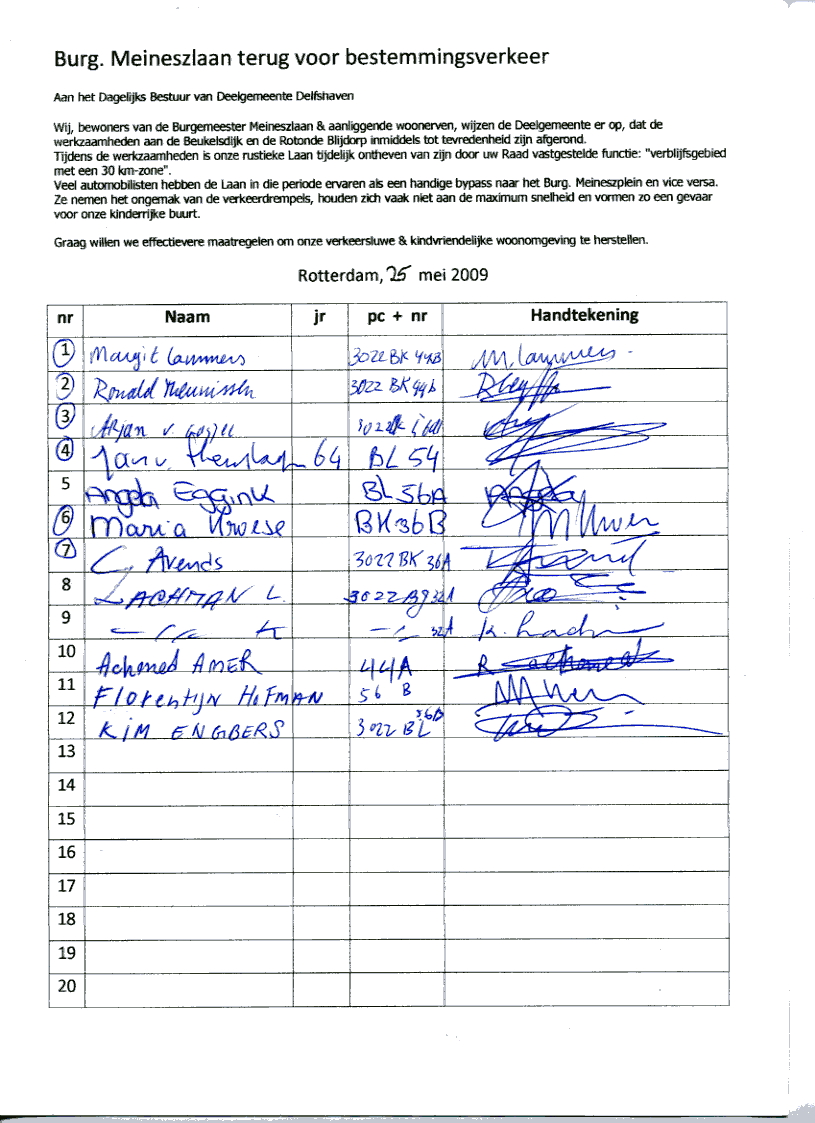 Burg. Meineszlaan terug voor bestemmingsverkeer
Aan het Dagelijks Bestuur van Deelgemeente Delfshaven
Wij, bewoners van de Burgemeester Meineszlaan & aanliggende woonerven, wijzen de Deelgemeente er op, dat de
werkzaamheden aan de Beukelsdijk en de Rotonde Blijdorp inmiddels tot tevredenheid zijn afgerond.
Tijdens de werkzaamheden is onze rustieke Laan tijdelijk ontheven van zijn door uw Raad vastgestelde functie: "verblijfsgebied
met een 30 km-zone".
Veel automobilisten hebben de Laan in die periode ervaren als een handige bypass naar het Burg. Meineszplein en vice versa.
Ze nemen het ongemak van de verkeerdrempels, houden zich vaak niet aan de maximum snelheid en vormen zo een gevaar
voor onze kinderrijke buurt.
Graag willen we effectievere maatregelen om onze verkeersluwe & kindvriendelijke woonomgeving te herstellen.
Rotterdam, 25 mei 2009
nr Naam jr pc + nr Handtekening
1 Margit Lammers 3022 BK 44B M. Lammers
2 Ronald Meunissen 3022 BK 44b
3 Arjan v.
4 Jan v. 64 BL 54
5 Angela Eggink BL 56A
6 Maria Kroese BK 36B
7 C Avends 3022 BK 36A
8 LACHMAN L. 3022 32A
9 32A
10 Achmed AMER 44A
11 Florentijn HOFMAN 56 B
12 KIM ENGBERS 3022 BL 56B
13
14
15
16
17
18
19
20